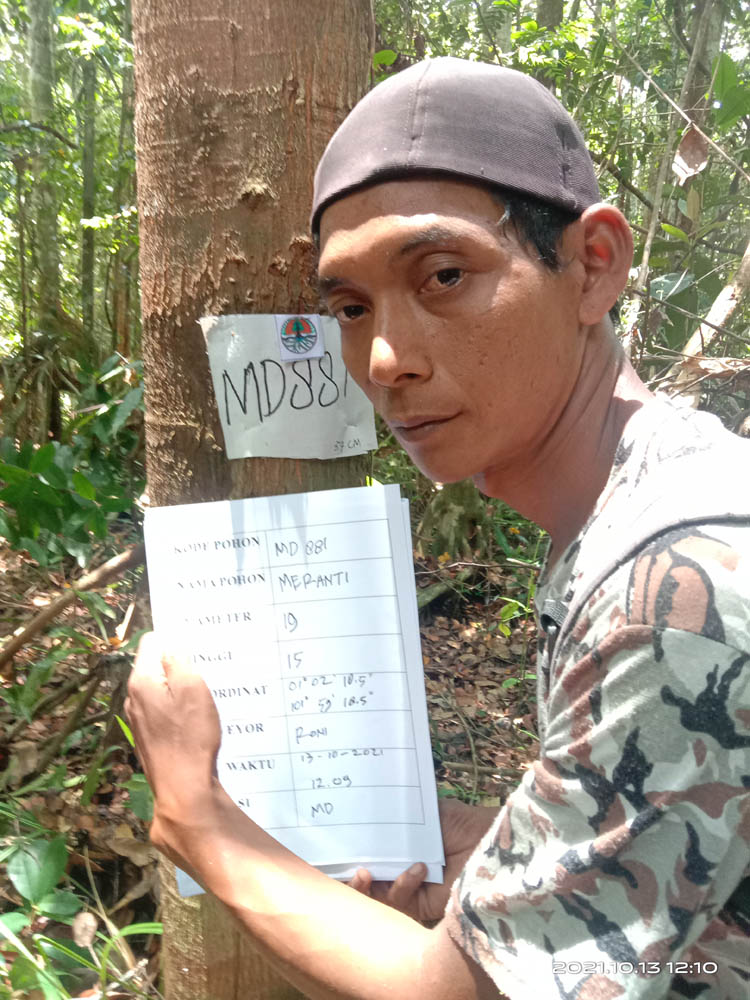 MD881
57 CM
KODE POHON MD 881
NAMA POHON MERANTI
AMETER 19
INGGI 15
ORDINAT 01° 02' 18.5"
101° 59' 18.5"
EYOR RONI
WAKTU 13-10-2021
12.09
SI MD
2021.10.13 12:10